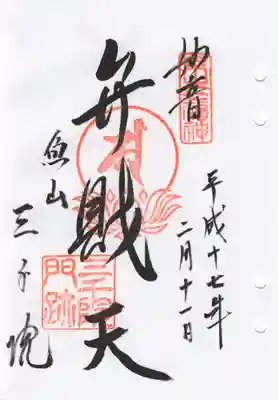 平成十七年
二月十一日
妙音
弁財天
魚山
三千院
三千院
門跡